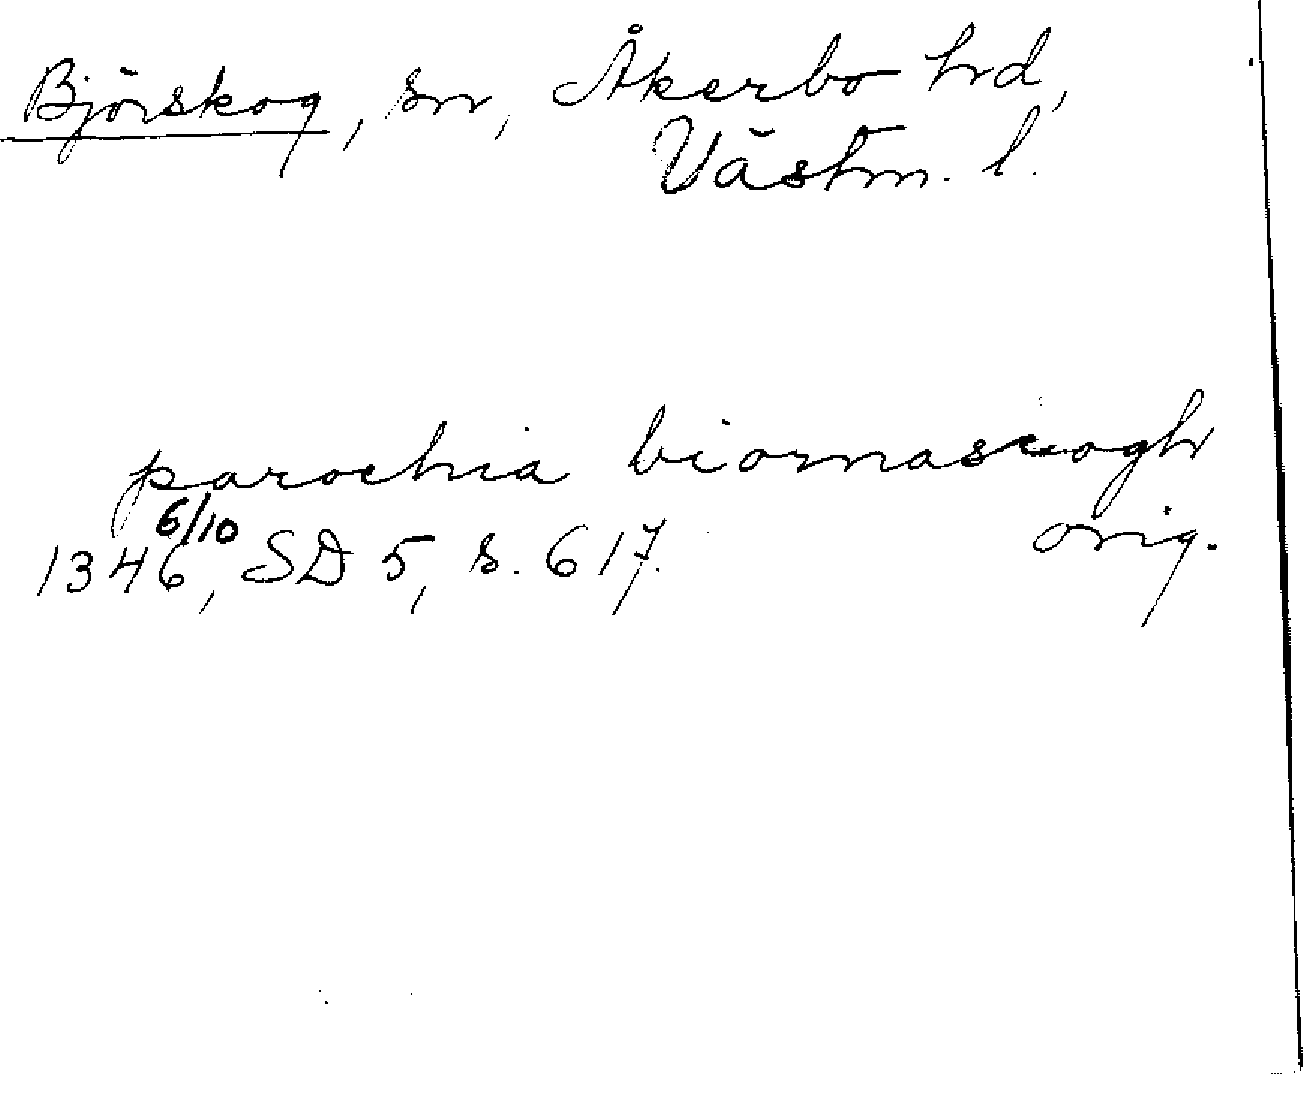 Björskog, sn, Åkerbo hd,
Västm. l.
parochia biornascogh
6/10
1346, SD 5, s. 617. orig.